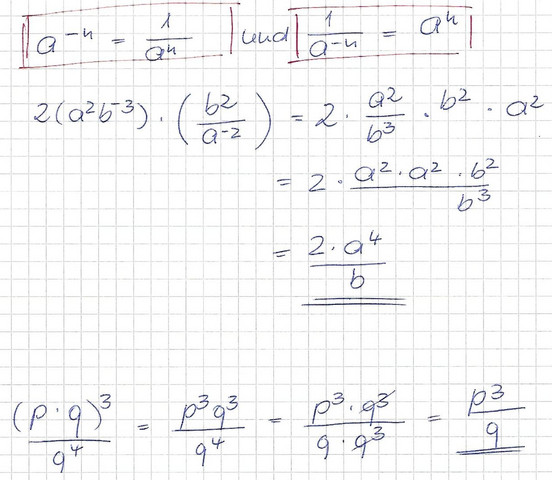 a⁻ⁿ = 1/aⁿ und 1/a⁻ⁿ = aⁿ
2(a²b⁻³) · (b²/a⁻²) = 2 · a²/b³ · b² · a²
= 2 · a² · a² · b²/b³
= 2 · a⁴/b
(p · q)³/q⁴ = p³q³/q⁴ = p³ · q³/q · q³ = p³/q